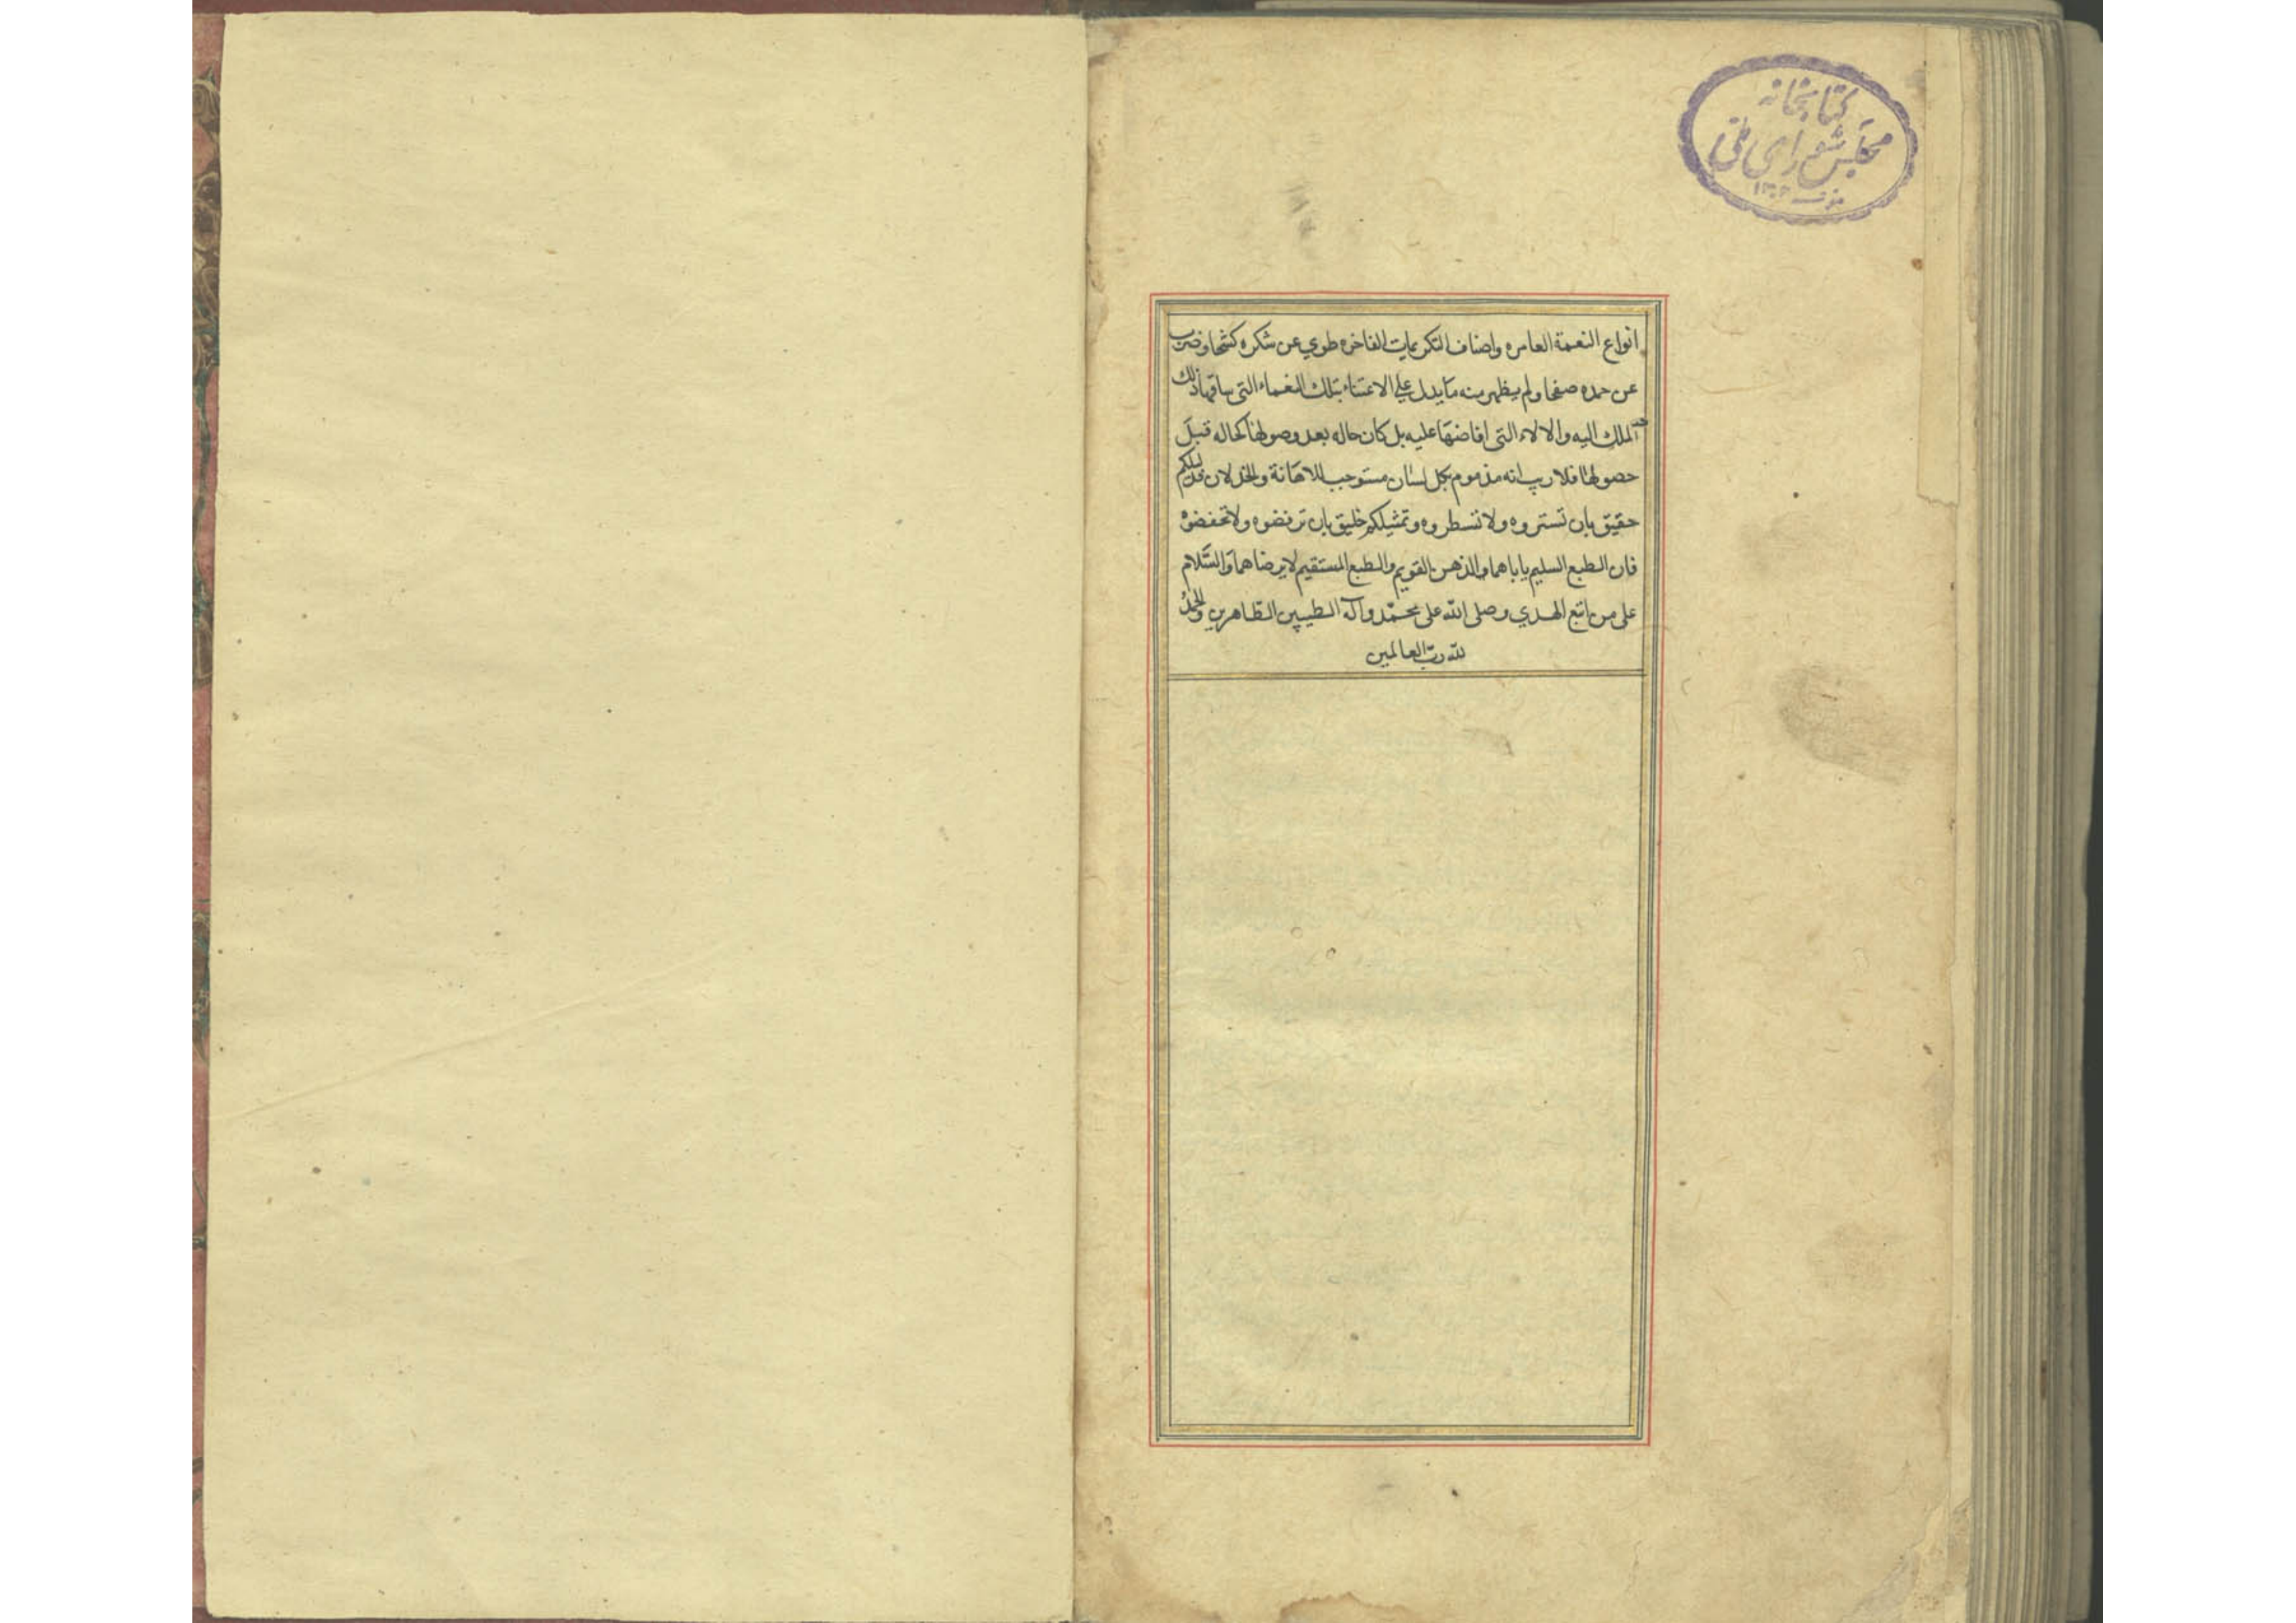 كتابخانه
مجلس شورای ملی
۱۳۰۲
انواع النعمة العامره واصناف التكريمات الفاخره طوي عن شكره كشحا وضرب
عن حمده صفحا ولم يظهر منه ما يدل علي الاعتناء بتلك النعماء التي ساقها ذلك
الملك اليه والالاء التي افاضها عليه بل كان حاله بعد وصولها كحاله قبل
حصولها فلا ريب انه مذموم بكل لسان مستوجب للاهانة والخذلان فدليلكم
حقيق بان تستروه ولا تسطروه وتمثيلكم خليق بان ترفضوه ولا تحفضوه
فان الطبع السليم ياباهما والذهن القويم والطبع المستقيم لا يرضاهما والسّلام
على من اتبع الهدي وصلى الله على محمّد وآله الطيبين الطاهرين والحمدُ
لله ربّ العالمين